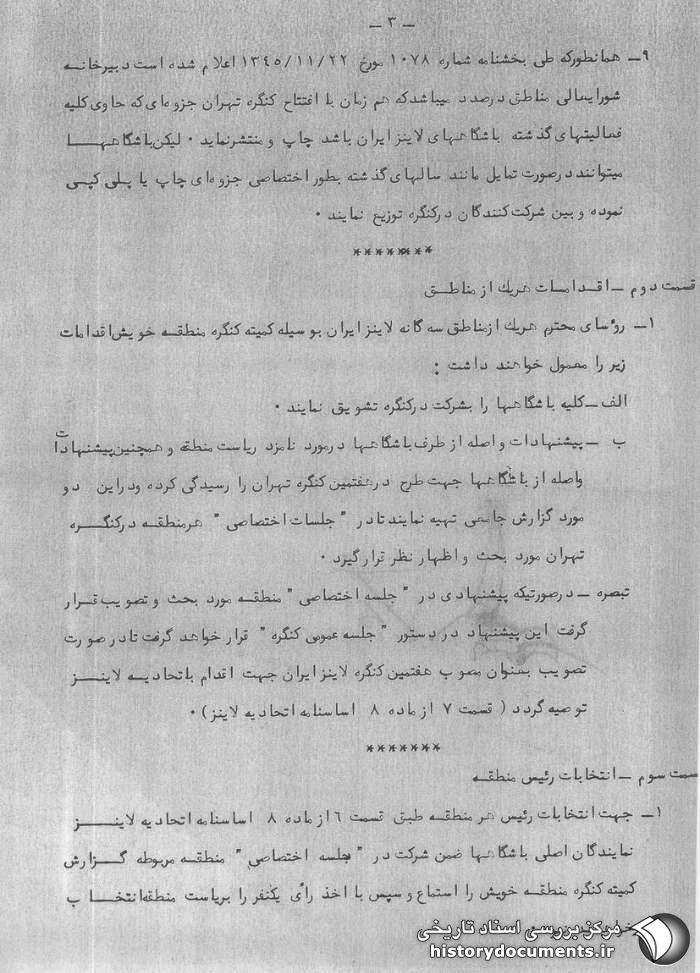 – ۳ –
۹– همانطورکه طی بخشنامه شماره ۱۰۷۸ مورخ ۱۳٤٥/۱۱/۲۲ اعلام شده است دبیرخانه
شورایعالی مناطق درصدد میباشدکه هم زمان با افتتاح کنگره تهران جزوه ای که حاوی کلیه
فعالیتهای گذشته باشگاههای لاینز ایران باشد چاپ و منتشرنماید ۰ لیکن باشگاهها
میتوانند درصورت تمایل مانند سالهای گذشته بطور اختصاصی جزوه ای چاپ یا پلی کپی
نموده و بین شرکت کنندگان درکنگره توزیع نمایند ۰
********
قسمت دوم – اقدامات هریك از مناطق
۱– روٴسای محترم هریك ازمناطق سه گانه لاینز ایران بوسیله کمیته کنگره منطقه خویش اقدامات
زیر را معمول خواهند داشت :
الف – کلیه باشگاهها را بشرکت درکنگره تشویق نمایند ۰
ب – پیشنهادات واصله از طرف باشگاهها درمورد نامزد ریاست منطقه و همچنین پیشنهادات
واصله از باشگاهها جهت طرح درهفتمین کنگره تهران را رسیدگی کرده ودراین دو
مورد گزارش جامعی تهیه نمایند تادر " جلسات اختصاصی " هرمنطقه درکنگره
تهران مورد بحث و اظهار نظر قرارگیرد ۰
تبصره – درصورتیکه پیشنهادی در " جلسه اختصاصی " منطقه مورد بحث و تصویب قرار
گرفت این پیشنهاد در دستور " جلسه عمومی کنگره " قرار خواهد گرفت تادرصورت
تصویب بعنوان مصوب هفتمین کنگره لاینز ایران جهت اقدام باتحادیه لاینز
توصیه گردد ( قسمت ۷ از ماده ۸ اساسنامه اتحادیه لاینز ) ۰
*******
سمت سوم – انتخابات رئیس منطقه
۱– جهت انتخابات رئیس هر منطقه طبق قسمت ٦ از ماده ۸ اساسنامه اتحادیه لاینز
نمایندگان اصلی باشگاهها ضمن شرکت در " جلسه اختصاصی " منطقه مربوطه گزارش
کمیته کنگره منطقه خویش را استماع و سپس با اخذ رأی یکنفر را بریاست منطقه انتخاب
مرکز بررسی اسناد تاریخی
historydocuments.ir